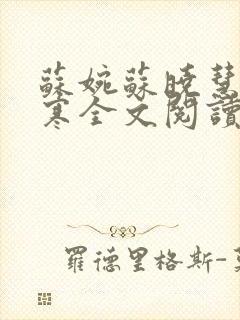 蘇婉蘇曉慧
寒全文閱讀
羅德里格斯-